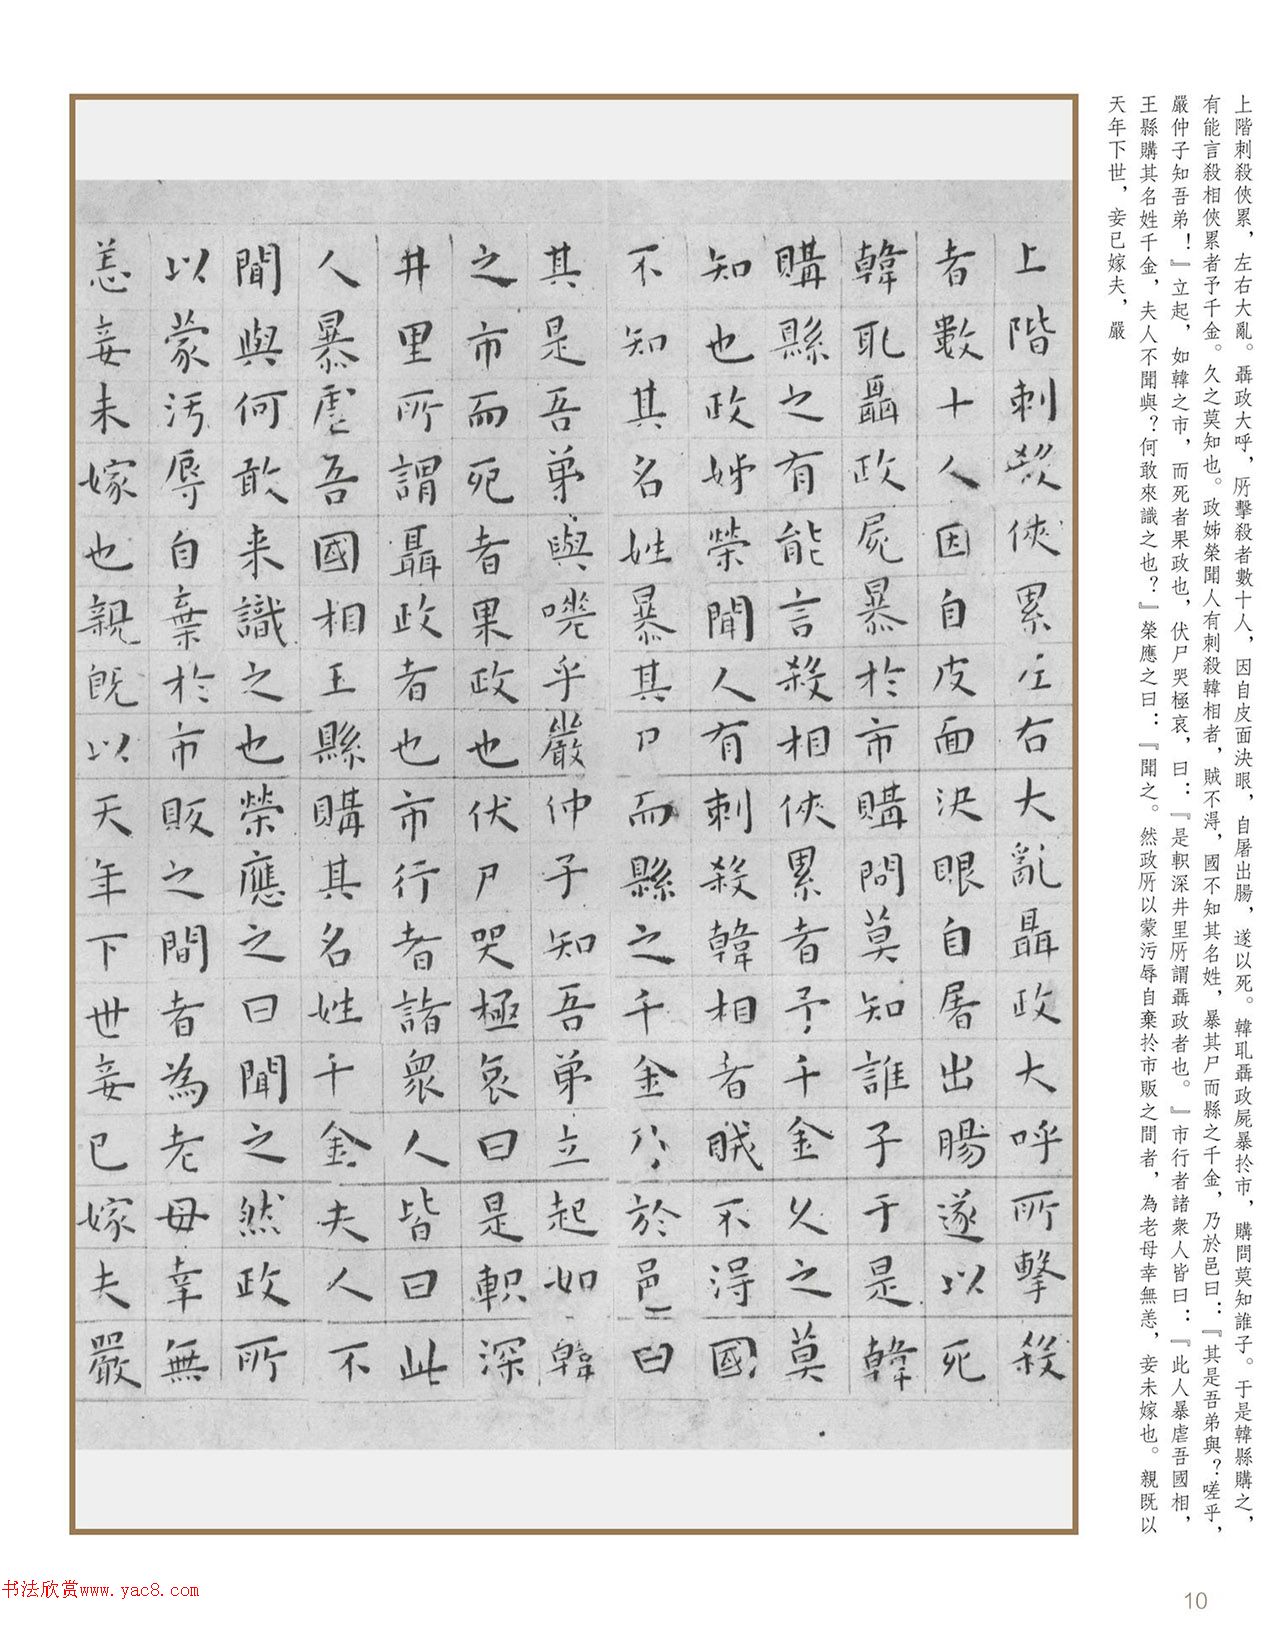 上階刺殺俠累，左右大亂。聶政大呼，所擊殺者數十人，因自皮面決眼，自屠出腸，遂以死。韓耴聶政屍暴扵市，購問莫知誰子。于是韓縣購之，
有能言殺相俠累者予千金。久之莫知也。政姊榮聞人有刺殺韓相者，賊不淂，國不知其名姓，暴其尸而縣之千金，乃於邑曰：『其是吾弟與？嗟乎，
嚴仲子知吾弟！』立起，如韓之市，而死者果政也，伏尸哭極哀，曰：『是軹深井里所謂聶政者也。』市行者諸衆人皆曰：『此人暴虐吾國相，
王縣購其名姓千金，夫人不聞與？何敢來識之也？』榮應之曰：『聞之。然政所以蒙污辱自棄扵市販之間者，為老母幸無恙，妾未嫁也。親既以
天年下世，妾已嫁夫，嚴
上階刺殺俠累左右大亂聶政大呼所擊殺
者數十人因自皮面決眼自屠出腸遂以死
韓耴聶政屍暴扵市購問莫知誰子于是韓
購縣之有能言殺相俠累者予千金久之莫
知也政姊榮聞人有刺殺韓相者賊不淂國
不知其名姓暴其尸而縣之千金乃於邑曰
其是吾弟與嗟乎嚴仲子知吾弟立起如韓
之市而死者果政也伏尸哭極哀曰是軹深
井里所謂聶政者也市行者諸衆人皆曰此
人暴虐吾國相王縣購其名姓千金夫人不
聞與何敢来識之也榮應之曰聞之然政所
以蒙污辱自棄扵市販之間者為老母幸無
恙妾未嫁也親既以天年下世妾已嫁夫嚴
书法欣赏www.yac8.com
10